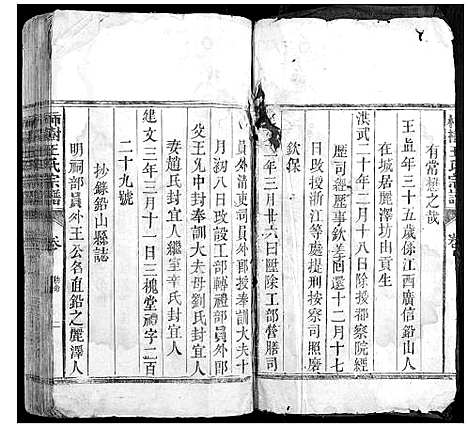 有常懋之哉
王直年三十五歲係江西廣信鉛山人
在城居麗澤坊由貢生
洪武二十年二月十八日除授都察院經
歷司經歷事欽差回十二月十七
日改授浙江等處提刑按察司照磨
欽保
年三月廿六日陞除工部營膳司
員外清吏司員外郎授奉訓大夫十
月初八日改設工部轉禮部員外郎
父王允中封奉訓大夫母劉氏封宜人
妻趙氏封宜人繼室辛氏封宜人
建文三年三月十一日三槐堂禮字二百
二十九號
抄錄鉛山縣誌
明祠部員外王公名直鉛之麗澤人
王氏宗譜
卷